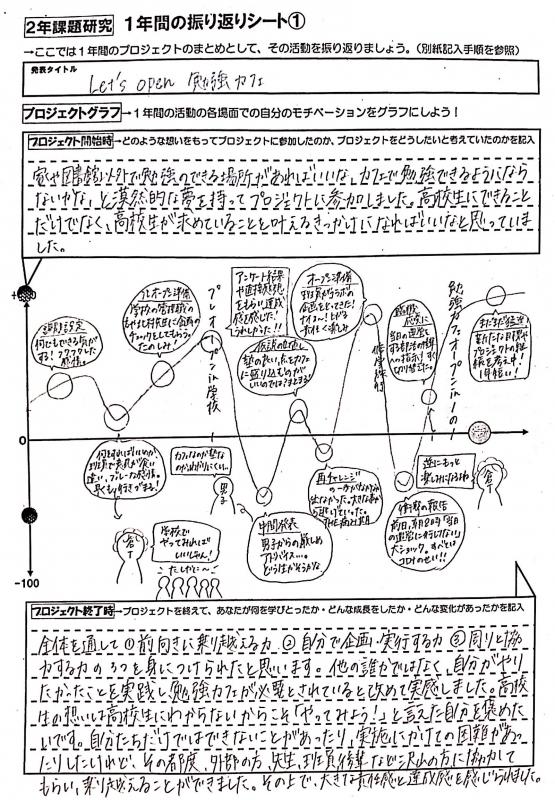 2年課題研究 1年間の振り返りシート①
→ここでは1年間のプロジェクトのまとめとして、その活動を振り返りましょう。(別紙記入手順を参照)
発表タイトル
Let's open 勉強カフェ
プロジェクトグラフ→1年間の活動の各場面での自分のモチベーションをグラフにしよう!
プロジェクト開始時→どのような想いをもってプロジェクトに参加したのか、プロジェクトをどうしたいと考えていたのかを記入
家や図書館以外で勉強のできる場所があればいいな、カフェで勉強できるようになら
ないかな、と漠然的な夢を持ってプロジェクトに参加しました。高校生にできること
だけでなく、高校生が求めていることを叶えるきっかけになればいいなと思っていま
した。
課題設定
何でもできる気が
する!ワクワクした
プレオープン準備
学校の管理職の
チェックをしてもらう。
たのしみ!
プレオープンin学校
アンケート結果
や直接感想
をもらい達成
感を感じた!
うれしかった!!
仮説の見直し
塾の良い点をカフェ
に盛り込むのが
いいのではとまとまる!
オープン準備
企画をとってきた!
修学旅行
当日の運営
切り替えた。
勉強カフェオープンin1の1
まだまだ続く
新たな目標や
プロジェクトの継
続を考え中!
1年短い!
0
カフェなのか塾な
のかわかりにくい…
男子
中間発表
男子からの厳しめ
アドバイス…
どうすればいいかな
再チャレンジ
逆にもっと
楽しみになるわね
倉下
衝撃の報告
前日、朝8時「当日
の運営に行けない」
大ショック。すべては
コロナのせい!!
学校で
やってみれば
いいじゃん!
たしかに〜
-100
プロジェクト終了時→プロジェクトを終えて、あなたが何を学びとったか・どんな成長をしたか・どんな変化があったかを記入
全体を通して①前向きに乗り越える力 ②自分で企画・実行する力 ③周りと協
力する力の3つを身につけられたと思います。他の誰かではなく、自分がやり
たかったことを実践し勉強カフェが必要とされていると改めて実感しました。高校
生の想いは高校生にしかわからないからこそ「やってみよう!」と言えた自分を褒めた
いです。自分たちだけではできないことがあったり、実施にかけての困難があっ
たりしたけれど、その都度、外部の方、先生、班員、後輩など沢山の方に協力して
もらい、乗り越えることができました。その上で、大きな責任感と達成感を感じられました。